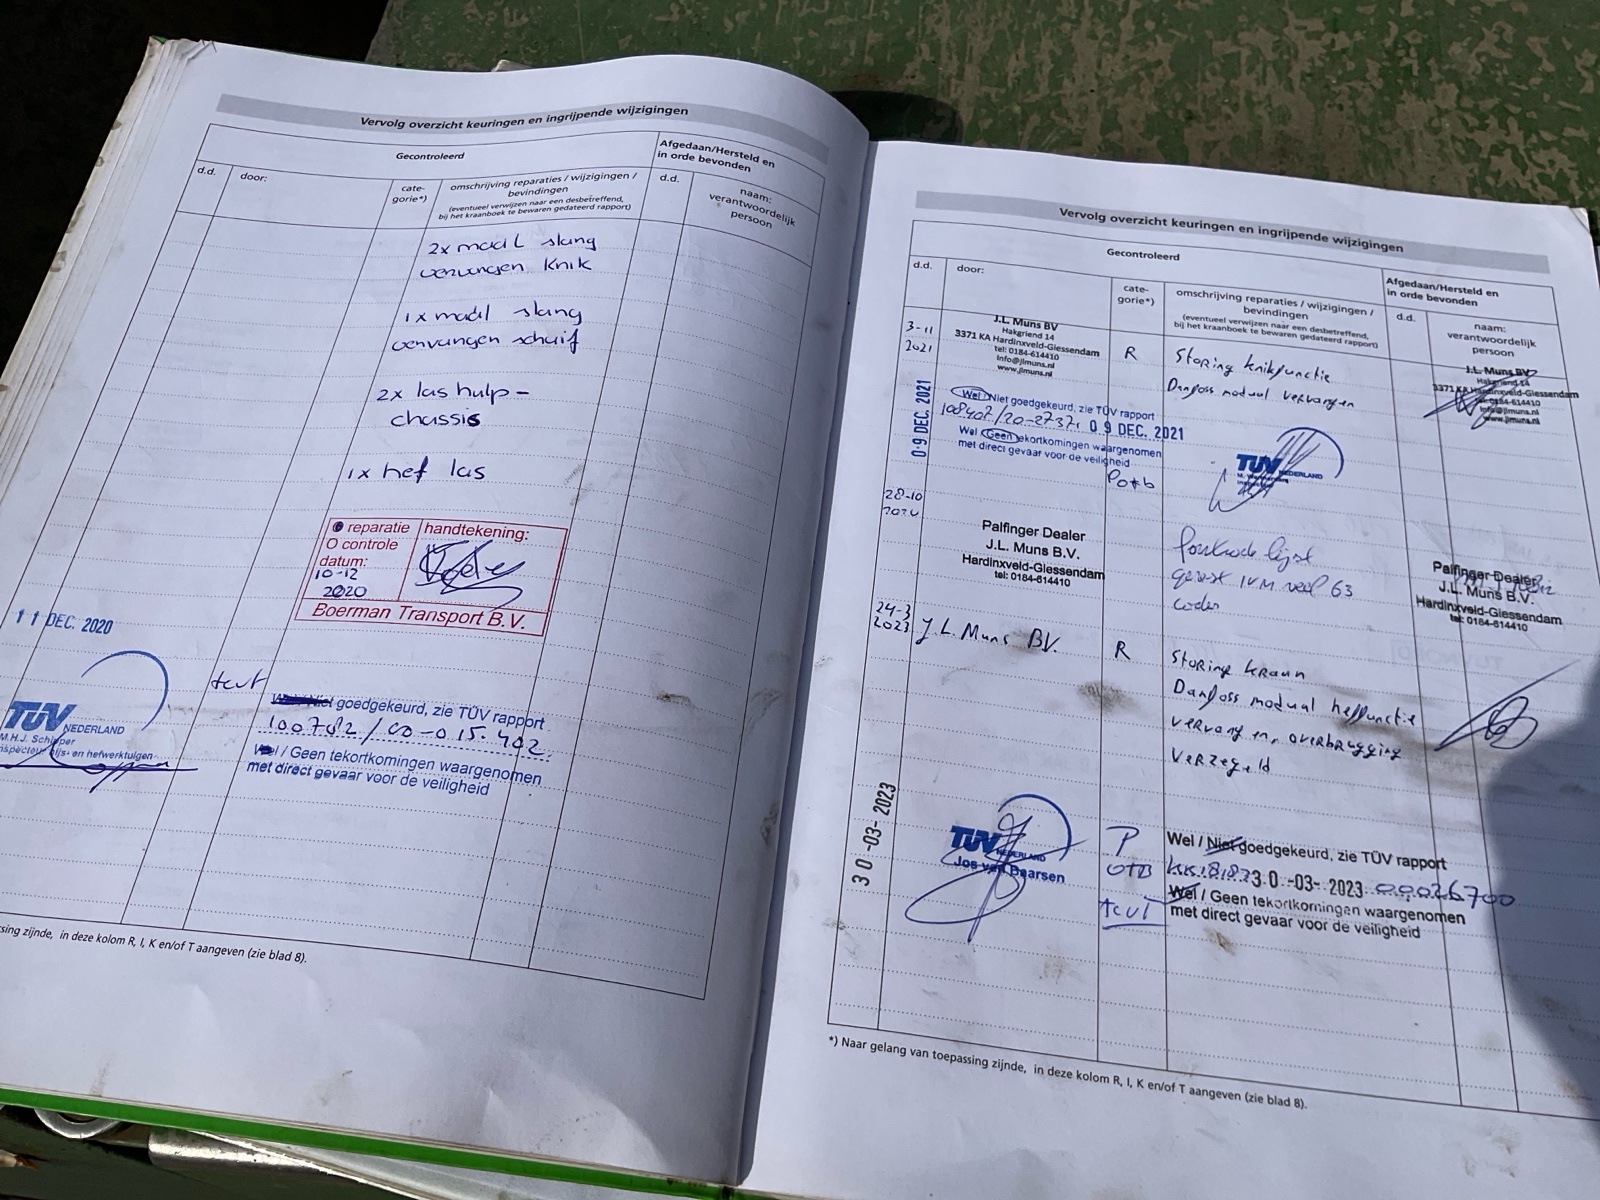 Vervolg overzicht keuringen en ingrijpende wijzigingen
Gecontroleerd
Afgedaan/Hersteld en
in orde bevonden
d.d.
door:
cate-
gorie*)
omschrijving reparaties / wijzigingen /
bevindingen
(eventueel verwijzen naar een desbetreffend,
bij het kraanboek te bewaren gedateerd rapport)
d.d.
naam:
verantwoordelijk
persoon
2x maal slang
vervangen knik
1x maal slang
vervangen schuif
2x las hulp-
chassis
1x hef las
reparatie
O controle
datum:
10-12
2020
handtekening:
Boerman Transport B.V.
11 DEC. 2020
TÜV NEDERLAND
M.H.J. Schipper
tcvt
goedgekeurd, zie TÜV rapport
Wel / Geen tekortkomingen waargenomen
met direct gevaar voor de veiligheid
sing zijnde, in deze kolom R, I, K en/of T aangeven (zie blad 8).
Vervolg overzicht keuringen en ingrijpende wijzigingen
Gecontroleerd
Afgedaan/Hersteld en
in orde bevonden
d.d.
door:
cate-
gorie*)
omschrijving reparaties / wijzigingen /
bevindingen
(eventueel verwijzen naar een desbetreffend,
bij het kraanboek te bewaren gedateerd rapport)
d.d.
naam:
verantwoordelijk
persoon
3-11
2021
J.L. Muns BV
Hakgriend 14
3371 KA Hardinxveld-Giessendam
tel: 0184-614410
info@jlmuns.nl
www.jlmuns.nl
R
Storing knikfunctie
Danfoss moduul vervangen
J.L. Muns BV
Hakgriend 14
3371 KA Hardinxveld-Giessendam
tel: 0184-614410
info@jlmuns.nl
www.jlmuns.nl
09 DEC. 2021
Wel / Niet goedgekeurd, zie TÜV rapport
09 DEC. 2021
Wel / Geen tekortkomingen waargenomen
met direct gevaar voor de veiligheid
TÜV NEDERLAND
28-10
Palfinger Dealer
J.L. Muns B.V.
Hardinxveld-Giessendam
tel: 0184-614410
63
codes
Palfinger Dealer
J.L. Muns B.V.
Hardinxveld-Giessendam
tel: 0184-614410
24-3
2023
J.L. Muns BV.
R
Storing kraan
Danfoss moduul heffunctie
vervangen, overbrugging
verzegeld
30-03-2023
TÜV NEDERLAND
Jos van Baarsen
P
OTB
tcvt
Wel / Niet goedgekeurd, zie TÜV rapport
30-03-2023 00026700
Wel / Geen tekortkomingen waargenomen
met direct gevaar voor de veiligheid
*) Naar gelang van toepassing zijnde, in deze kolom R, I, K en/of T aangeven (zie blad 8).